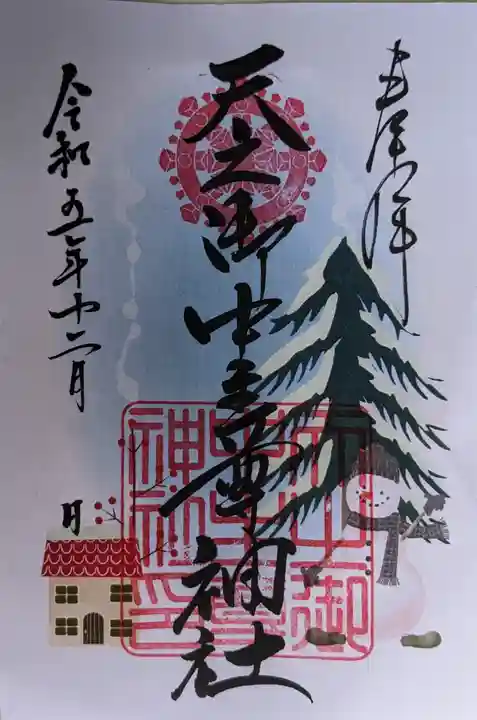 奉拝
天之御中主尊神社
令和五年十二月
日
天之御
中主尊
神社印